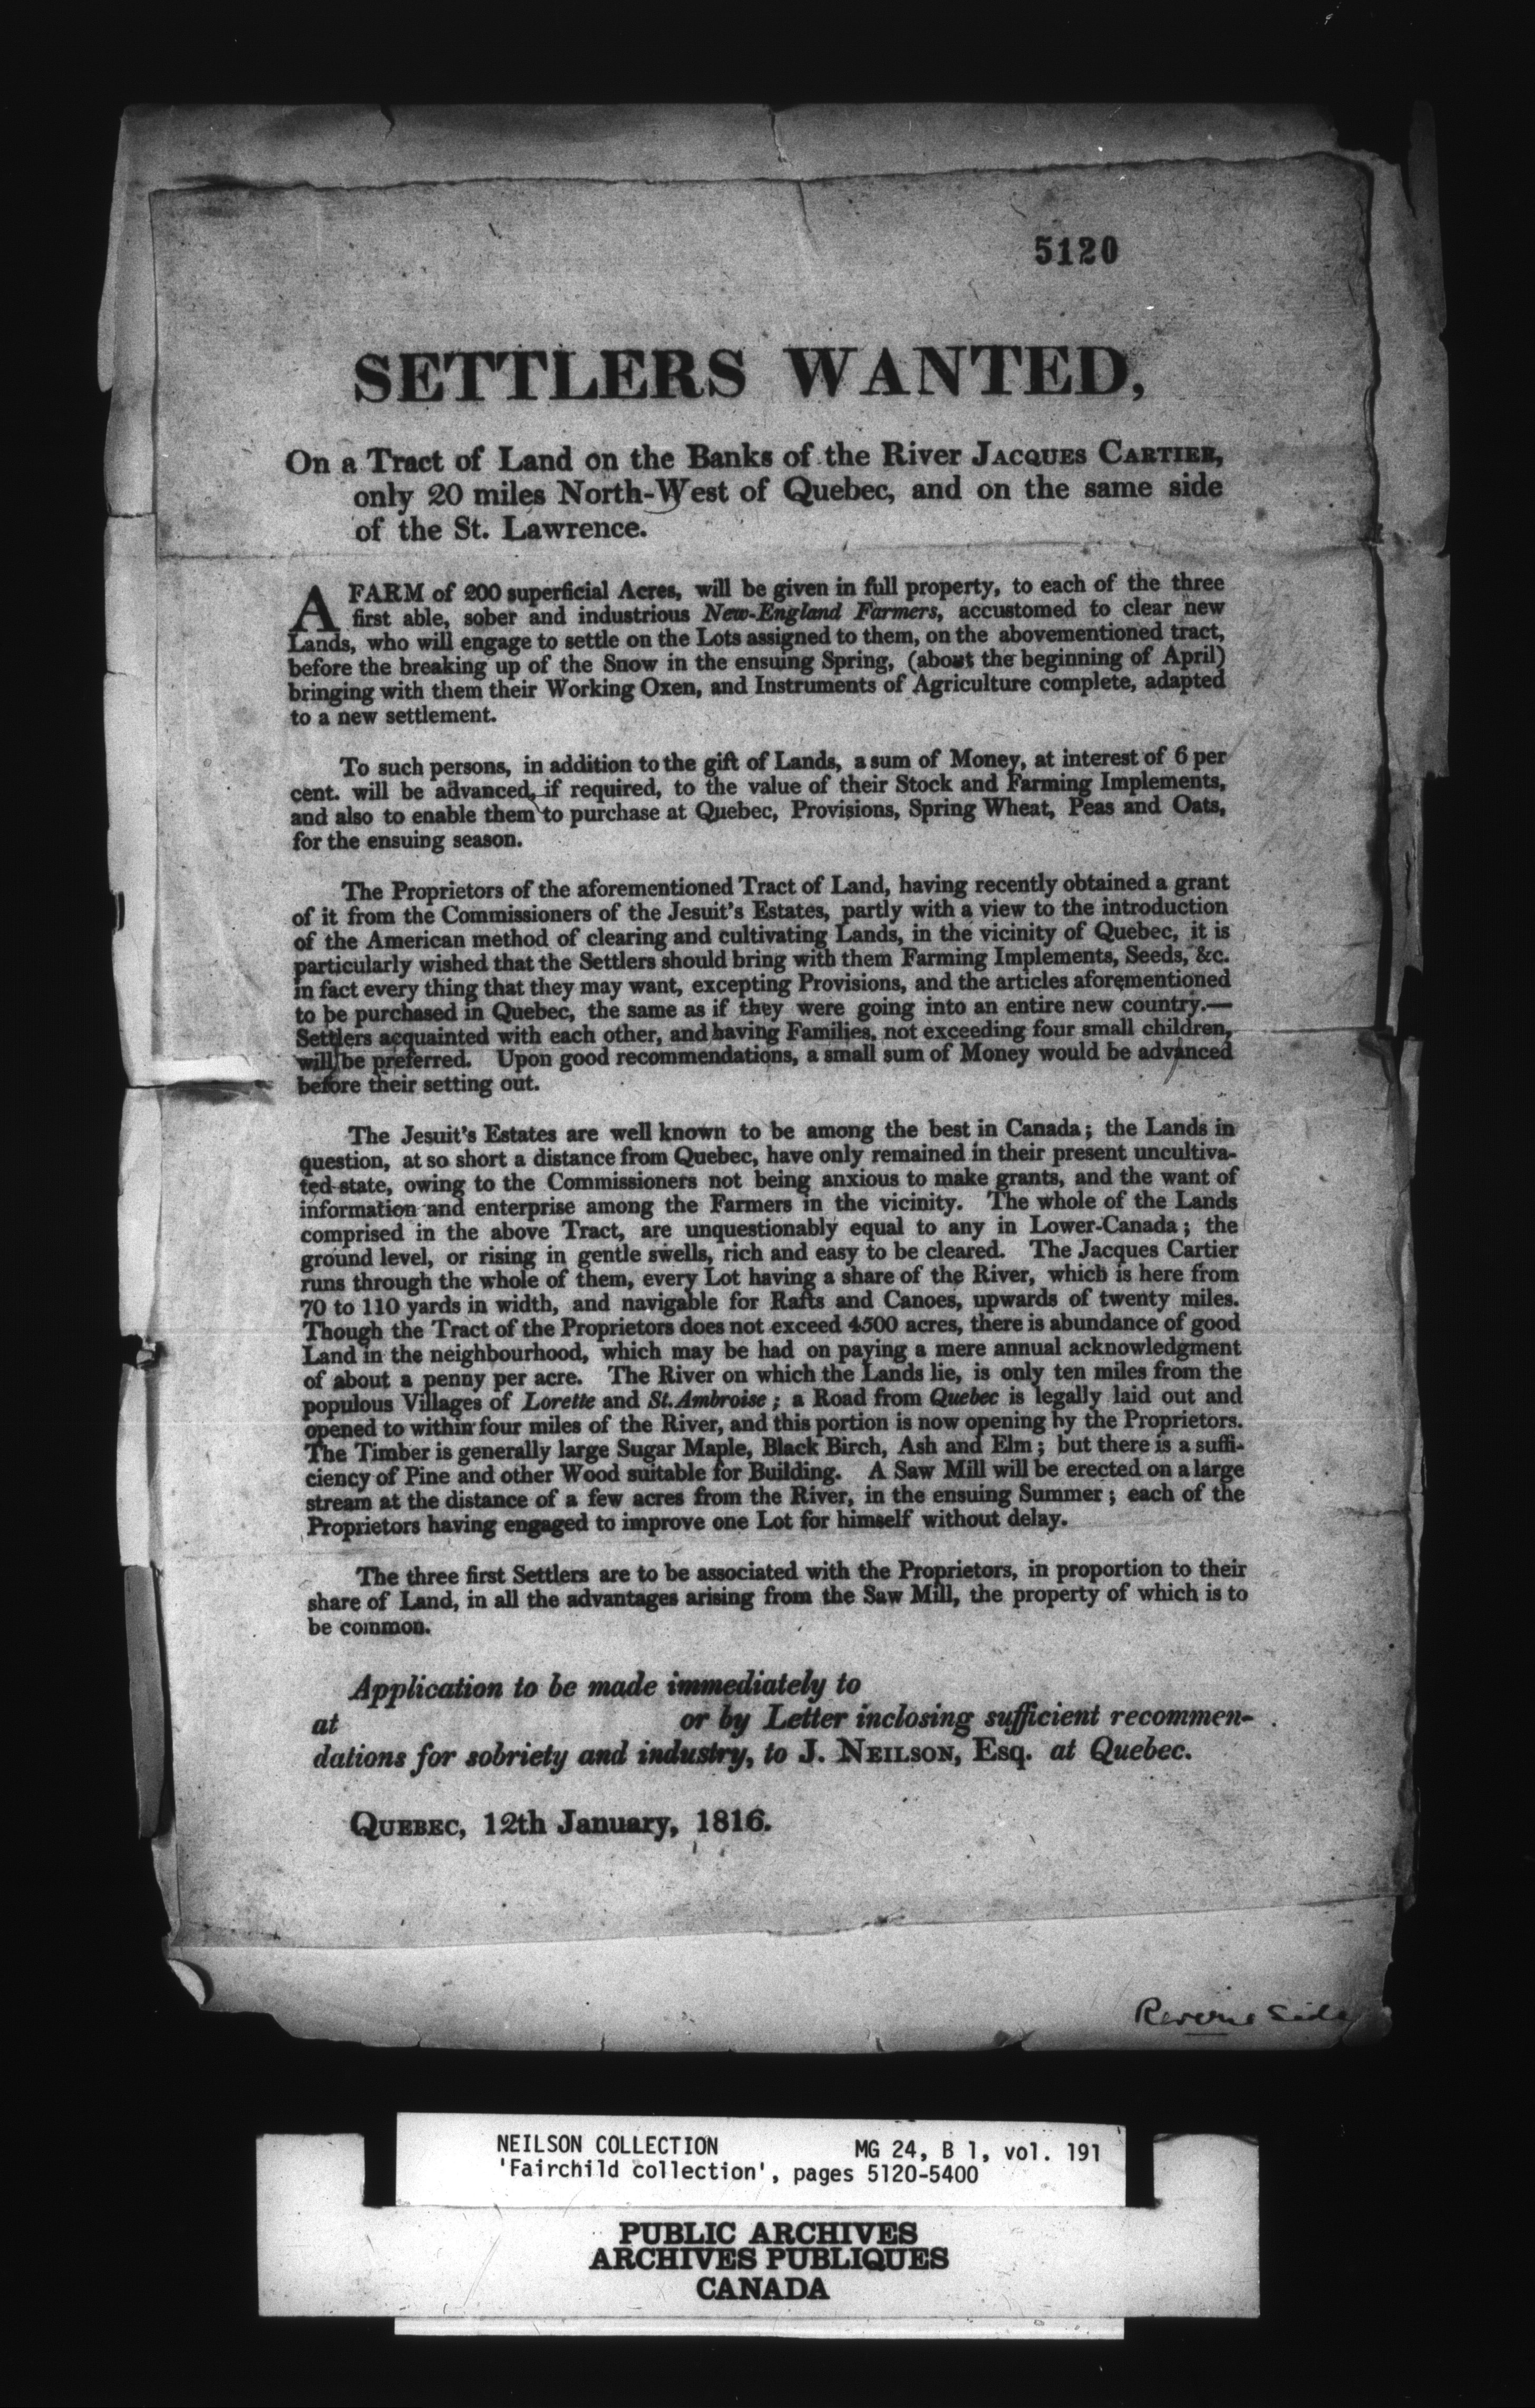 5120
SETTLERS WANTED,
On a Tract of Land on the Banks of the River JACQUES CARTIER,
only 20 miles North-West of Quebec, and on the same side
of the St. Lawrence.
A FARM of 200 superficial Acres, will be given in full property, to each of the three
first able, sober and industrious New-England Farmers, accustomed to clear new
Lands, who will engage to settle on the Lots assigned to them, on the abovementioned tract,
before the breaking up of the Snow in the ensuing Spring, (about the beginning of April)
bringing with them their Working Oxen, and Instruments of Agriculture complete, adapted
to a new settlement.
To such persons, in addition to the gift of Lands, a sum of Money, at interest of 6 per
cent. will be advanced, if required, to the value of their Stock and Farming Implements,
and also to enable them to purchase at Quebec, Provisions, Spring Wheat, Peas and Oats,
for the ensuing season.
The Proprietors of the aforementioned Tract of Land, having recently obtained a grant
of it from the Commissioners of the Jesuit's Estates, partly with a view to the introduction
of the American method of clearing and cultivating Lands, in the vicinity of Quebec, it is
particularly wished that the Settlers should bring with them Farming Implements, Seeds, &c.
in fact every thing that they may want, excepting Provisions, and the articles aforementioned
to be purchased in Quebec, the same as if they were going into an entire new country.—
Settlers acquainted with each other, and having Families, not exceeding four small children,
will be preferred. Upon good recommendations, a small sum of Money would be advanced
before their setting out.
The Jesuit's Estates are well known to be among the best in Canada; the Lands in
question, at so short a distance from Quebec, have only remained in their present uncultiva-
ted state, owing to the Commissioners not being anxious to make grants, and the want of
information and enterprise among the Farmers in the vicinity. The whole of the Lands
comprised in the above Tract, are unquestionably equal to any in Lower-Canada; the
ground level, or rising in gentle swells, rich and easy to be cleared. The Jacques Cartier
runs through the whole of them, every Lot having a share of the River, which is here from
70 to 110 yards in width, and navigable for Rafts and Canoes, upwards of twenty miles.
Though the Tract of the Proprietors does not exceed 4500 acres, there is abundance of good
Land in the neighbourhood, which may be had on paying a mere annual acknowledgment
of about a penny per acre. The River on which the Lands lie, is only ten miles from the
populous Villages of Lorette and St. Ambroise; a Road from Quebec is legally laid out and
opened to within four miles of the River, and this portion is now opening by the Proprietors.
The Timber is generally large Sugar Maple, Black Birch, Ash and Elm; but there is a suffi-
ciency of Pine and other Wood suitable for Building. A Saw Mill will be erected on a large
stream at the distance of a few acres from the River, in the ensuing Summer; each of the
Proprietors having engaged to improve one Lot for himself without delay.
The three first Settlers are to be associated with the Proprietors, in proportion to their
share of Land, in all the advantages arising from the Saw Mill, the property of which is to
be common.
Application to be made immediately to
at or by Letter inclosing sufficient recommen-
dations for sobriety and industry, to J. NEILSON, Esq. at Quebec.
QUEBEC, 12th January, 1816.
Reverse Side
NEILSON COLLECTION MG 24, B 1, vol. 191
'Fairchild collection', pages 5120-5400
PUBLIC ARCHIVES
ARCHIVES PUBLIQUES
CANADA